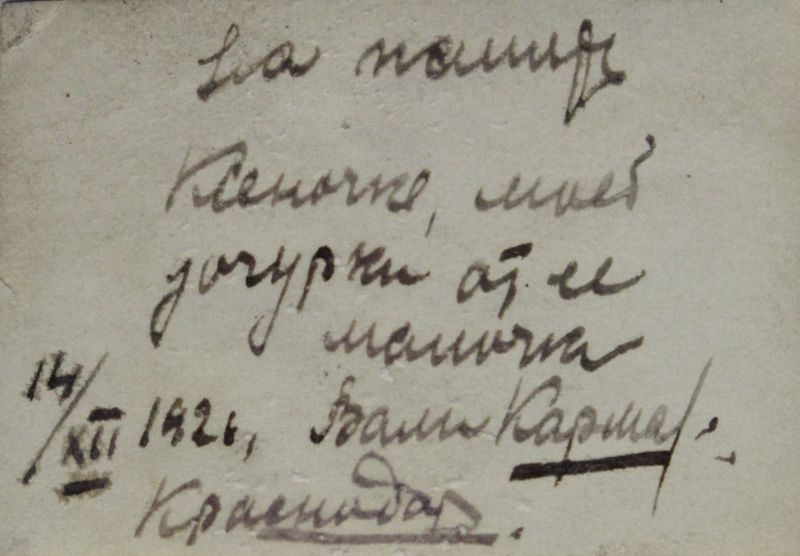 На память
Ксеночке, моей
дочурки от ее
мамочки
14/XII 192 Вали
Краснодар.